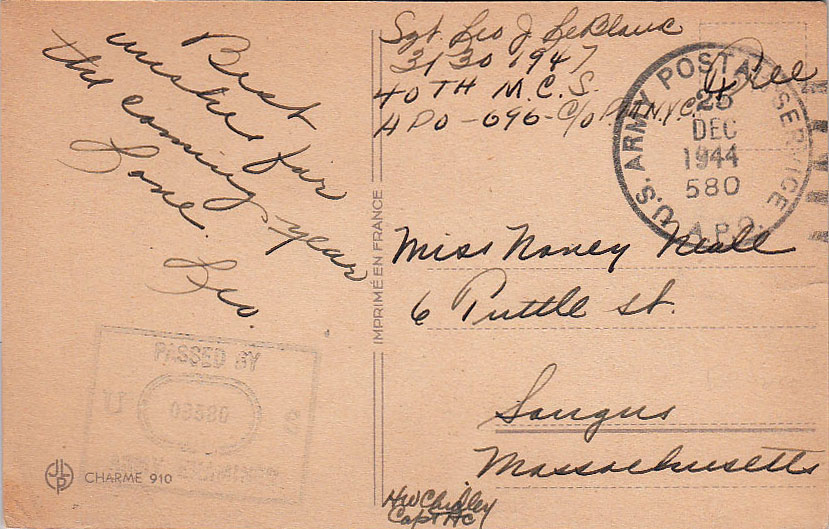 Best
wishes for
the coming year
Love.
Leo.
PASSED BY
U S
CHARME 910
IMPRIMÉ EN FRANCE
Sgt. Leo J LeBlanc
31301947
40TH M.C.S.
APO-696-C/O P.M. N.Y.C.
Free
U.S. ARMY POSTAL SERVICE
25
DEC
1944
580
A.P.O.
Miss Nancy Neale
6 Tuttle St.
Saugus
Massachusetts
HW
Capt AC